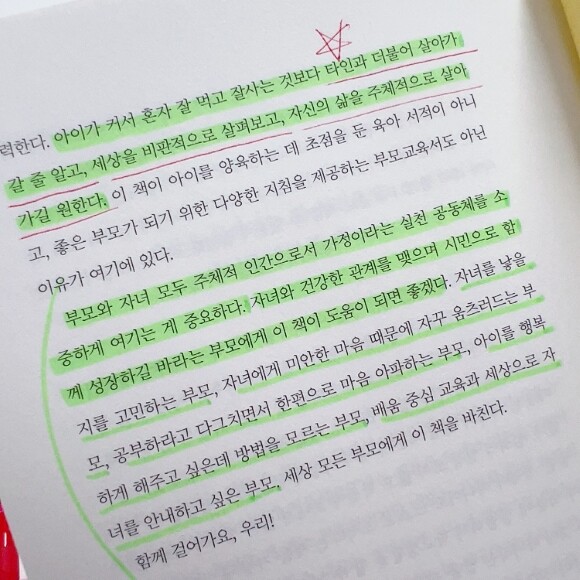 력한다. 아이가 커서 혼자 잘 먹고 잘사는 것보다 타인과 더불어 살아가
갈 줄 알고, 세상을 비판적으로 살펴보고, 자신의 삶을 주체적으로 살아
가길 원한다. 이 책이 아이를 양육하는 데 초점을 둔 육아 서적이 아니
고, 좋은 부모가 되기 위한 다양한 지침을 제공하는 부모교육서도 아닌
이유가 여기에 있다.
부모와 자녀 모두 주체적 인간으로서 가정이라는 실천 공동체를 소
중하게 여기는 게 중요하다. 자녀와 건강한 관계를 맺으며 시민으로 함
께 성장하길 바라는 부모에게 이 책이 도움이 되면 좋겠다. 자녀를 낳을
지를 고민하는 부모, 자녀에게 미안한 마음 때문에 자꾸 움츠러드는 부
모, 공부하라고 다그치면서 한편으로 마음 아파하는 부모, 아이를 행복
하게 해주고 싶은데 방법을 모르는 부모, 배움 중심 교육과 세상으로 자
녀를 안내하고 싶은 부모, 세상 모든 부모에게 이 책을 바친다.
함께 걸어가요, 우리!